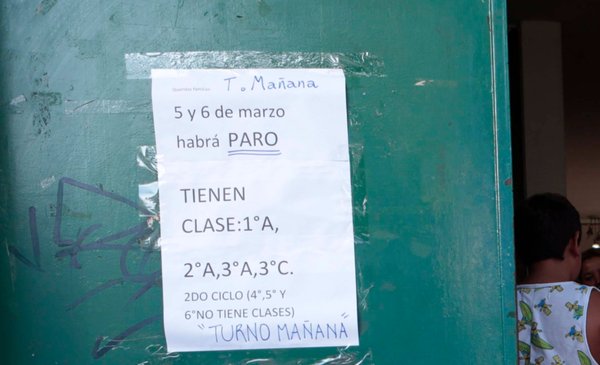 Queridas familias T. Mañana
5 y 6 de marzo
habrá PARO
TIENEN
CLASE:1°A,
2°A,3°A,3°C.
2DO CICLO (4°,5° Y
6°NO TIENE CLASES)
"TURNO MAÑANA"